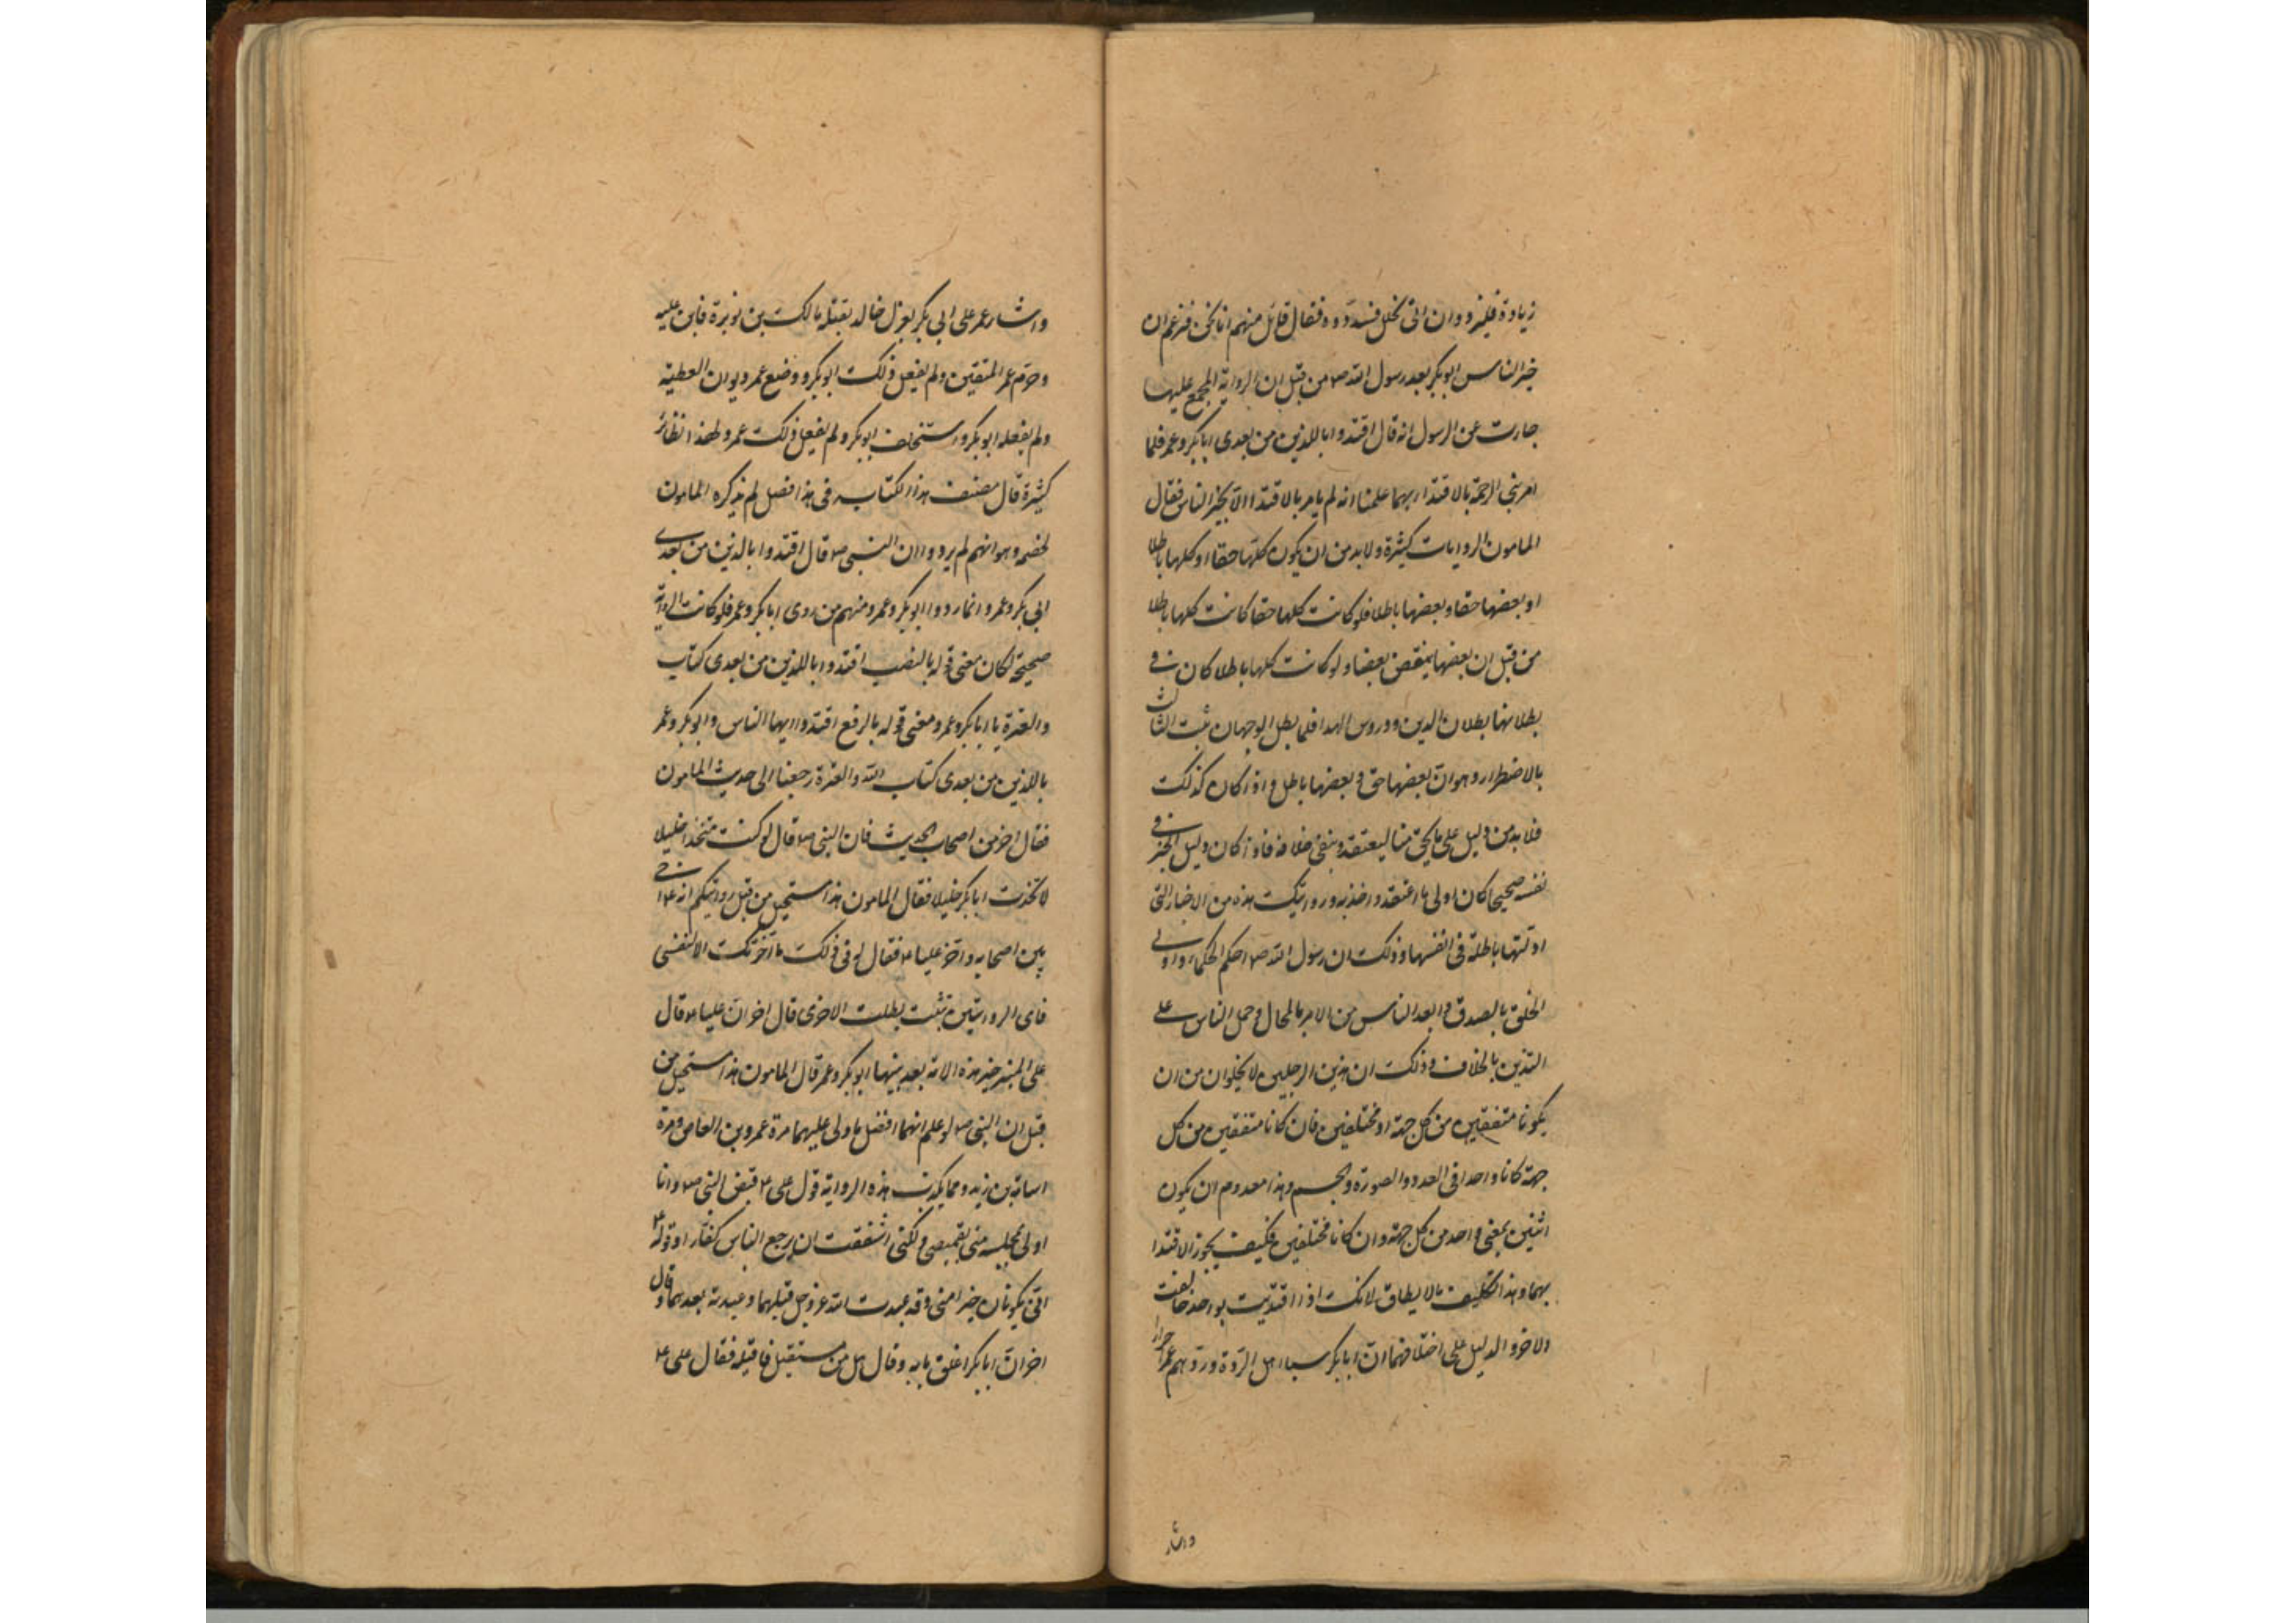 زيادة فليزدوا وان اني بخل فسددوه فقال قائل منهم انا نحن فنزعم ان
خير الناس ابو بكر بعد رسول الله ص من قبل ان الرواية المجمع عليها
جاءت عن الرسول انه قال اقتدوا باللذين من بعدى ابا بكر وعمر فلما
امر نبي الرحمة بالاقتداء بهما علمنا انه لم يامر بالاقتدا الا بخير الناس فقال
المامون الروايات كثيرة ولابد من ان يكون كلها حقا او كلها باطلا
او بعضها حقا وبعضها باطلا فلو كانت كلها حقا كانت كلها باطلا
من قبل ان بعضها ينقض بعضا ولو كانت كلها باطلا كان فى
بطلانها بطلان الدين ودروس الهدا فلما بطل الوجهان ثبت الثالث
بالاضطرار وهو ان بعضها حق وبعضها باطل واذا كان كذلك
فلا بد من دليل على ما يحق منها ليعتقد وينفى خلافه فاذا كان دليل الخبر فى
نفسه صحيحا كان اولى ما اعتقد واخذ به وروايتك هذه من الاخبار التى
ادلتها باطلة فى انفسها وذلك ان رسول الله ص احكم الحكماء واولى
الخلق بالصدق وابعد الناس من الامر بالمحال وحمل الناس على
التدين بالخلاف وذلك ان هذين الرجلين لا يخلوان من ان
يكونا متفقين من كل جهة او مختلفين فان كانا متفقين من كل
جهة كانا واحدا فى العدد والصورة والجسم وهذا معدوم ان يكون
اثنين بمعنى واحد من كل جهة وان كانا مختلفين فكيف يجوز الاقتدا
بهما وهذا تكليف ما لا يطاق لانك اذا اقتديت بواحد خالفت
الاخر والدليل على اختلافهما ان ابا بكر سبا اهل الردة وردهم عمر احرارا
واشار
واشار عمر على ابى بكر بعزل خالد بقتله مالك بن نويرة فابى عليه
وحرم عمر المتعتين ولم يفعل ذلك ابو بكر ووضع عمر ديوان العطية
ولم يفعله ابو بكر واستخلف ابو بكر ولم يفعل ذلك عمر ولهذا نظائر
كثيرة قال مصنف هذا الكتاب فى هذا فصل لم يذكره المامون
لخصمه وهو انهم لم يرووا ان النبى ص قال اقتدوا بالذين من بعدى
ابى بكر وعمر وانما رووا ابو بكر وعمر ومنهم من روى ابا بكر وعمر فلو كانت الرواية
صحيحة لكان معنى قوله بالنصب اقتدوا باللذين من بعدى كتاب
والعترة يا ابا بكر وعمر ومعنى قوله بالرفع اقتدوا ايها الناس وابو بكر وعمر
باللذين من بعدى كتاب الله والعترة رجعنا الى حديث المامون
فقال اخر من اصحاب الحديث فان النبى ص قال لو كنت متخذا خليلا
لاتخذت ابا بكر خليلا فقال المامون هذا مستحيل من قبل روايتكم انه ع اخى
بين اصحابه واخر عليا ع فقال له فى ذلك ما اخرتك الا لنفسى
فاى الروايتين ثبتت بطلت الاخرى قال اخر ان عليا ع قال
على المنبر خير هذه الامة بعد نبيها ابو بكر وعمر قال المامون هذا مستحيل من
قبل ان النبى ص لو علم انهما افضل ما ولى عليهما مرة عمرو بن العاص ومرة
اسامة بن زيد ومما يكذب هذه الرواية قول على ع قبض النبى ص وانا
اولى بمجلسه منى بقميصى ولكنى اشفقت ان يرجع الناس كفارا وقوله ع
انى يكونان خيرا منى وقد عبدت الله عز وجل قبلهما وعبدته بعدهما وقال
اخر ان ابا بكر اغلق بابه وقال هل من مستقيل فاقيله فقال على ع